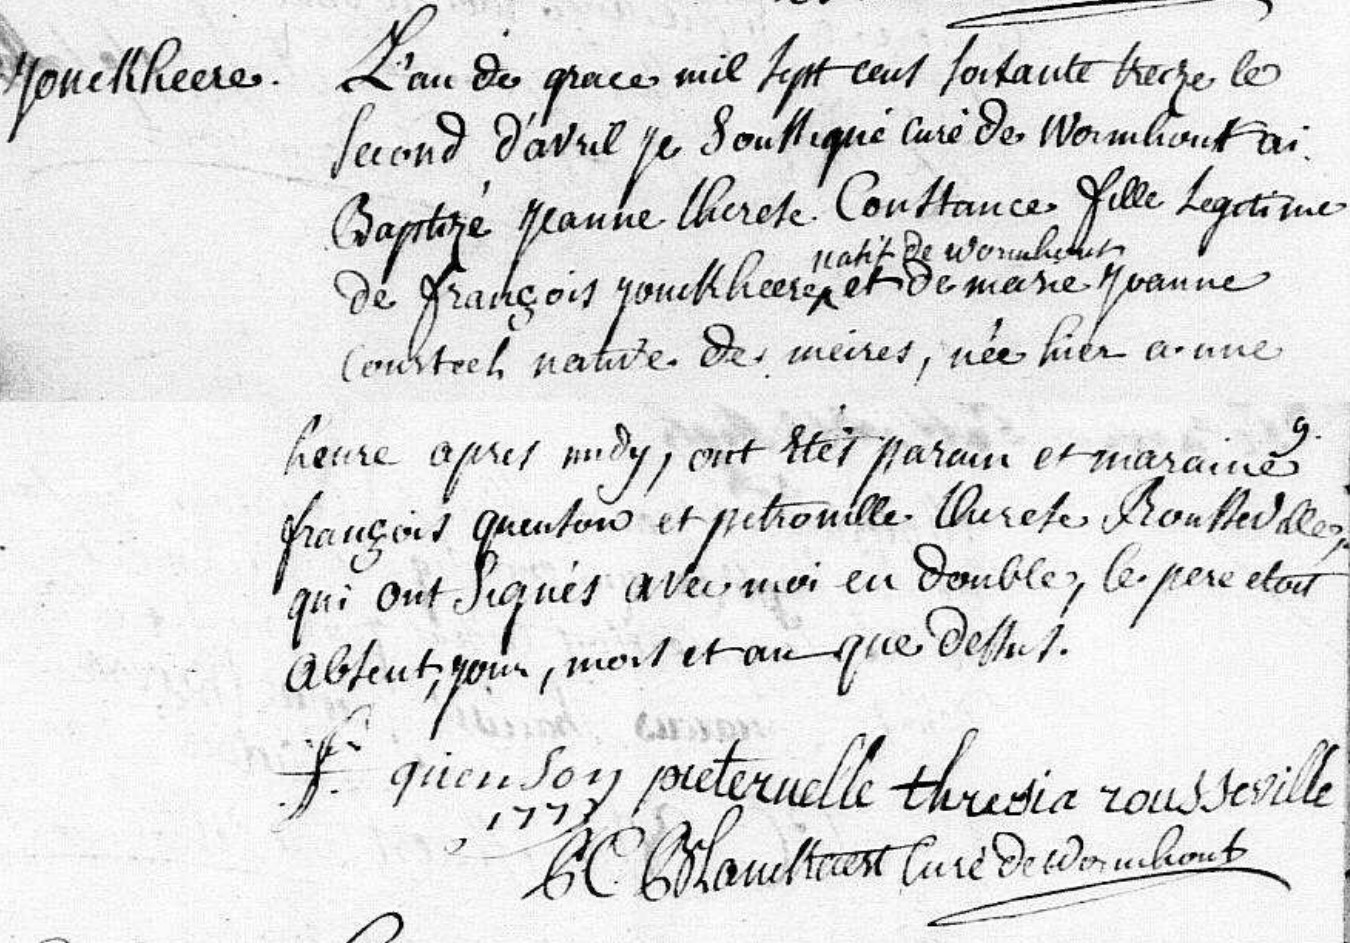 Yonckheere. L'an de grace mil sept cent soixante treize le
second d'avril je soussigné curé de Wormhout ai
Baptizé yeanne therese Constance fille Legitime
natif de wormhout
de françois yonckheere et de marie yoanne
Courtech native de meires, née hier a une
heure apres midy, ont étés parain et maraine
françois quenson et petronille therese Rousseville,
qui ont signés avec moi en double, le pere etoit
Absent, jour, mois et an que dessus.
f. quenson pieternelle thresia rousseville
1773
Curé de wormhout